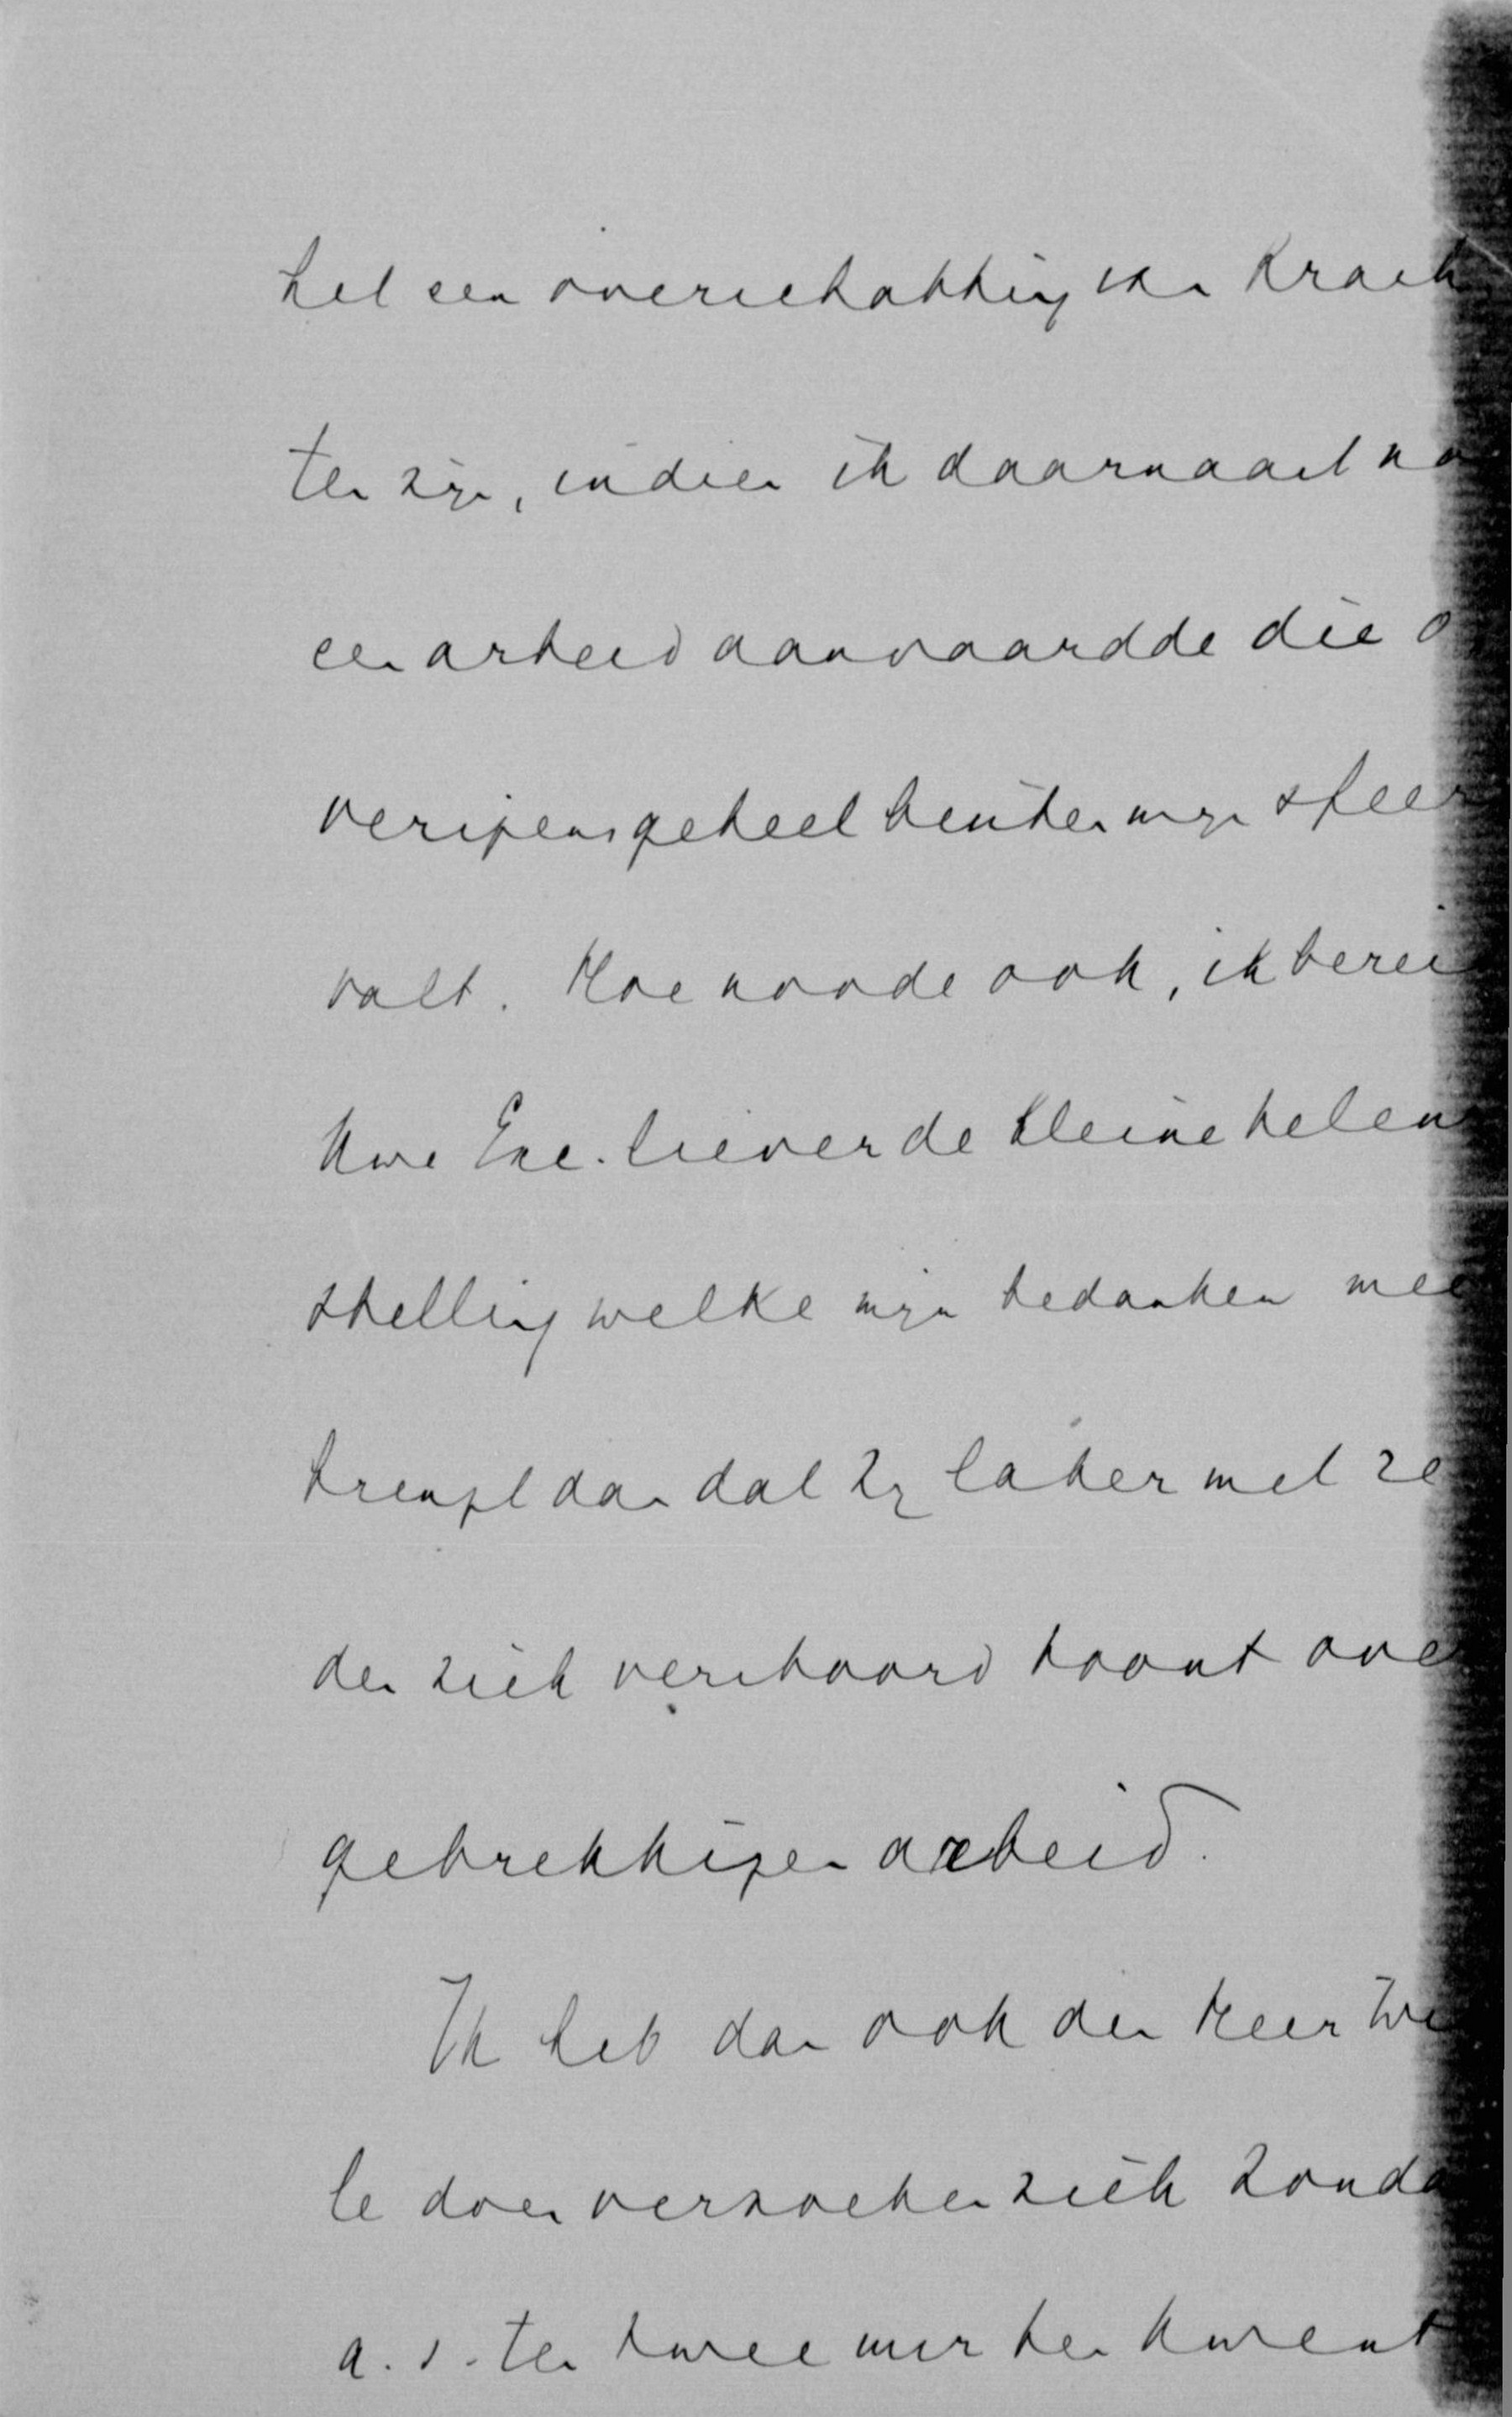 het een overschatting van krach
ten zijn, indien ik daarnaast no
een arbeid aanvaardde die o
verigens geheel buiten mijn sfeer
valt. Hoe noode ook, ik berei
Uwe Exc. liever de kleine teleur
stelling welke mijn bedanken mee
brengt dan dat zij later met re
den zich verstoord toont over
gebrekkigen arbeid.
Ik heb dan ook den Heer
te doen verzoeken zich Zonda
a.s. ten twee uur ten Uwent